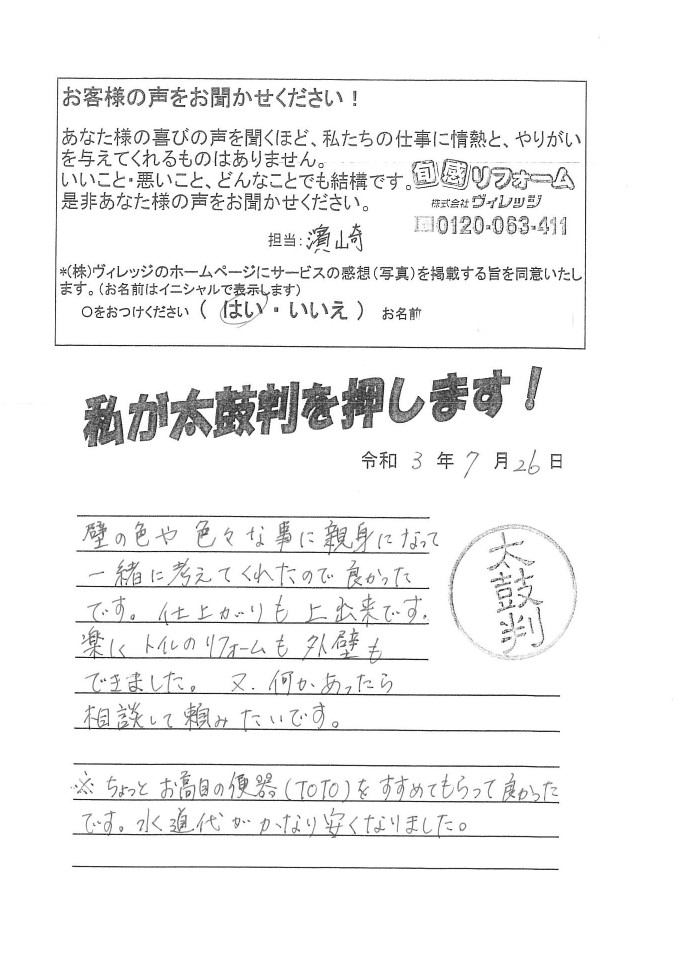 お客様の声をお聞かせください！
あなた様の喜びの声を聞くほど、私たちの仕事に情熱と、やりがい
を与えてくれるものはありません。
いいこと・悪いこと、どんなことでも結構です。
是非あなた様の声をお聞かせください。
旬感リフォーム
株式会社ヴィレッジ
0120-063-411
担当：濱崎
*(株)ヴィレッジのホームページにサービスの感想(写真)を掲載する旨を同意いたし
ます。(お名前はイニシャルで表示します)
○をおつけください ( はい・いいえ ) お名前
私が太鼓判を押します！
令和 3 年 7 月 26 日
壁の色や 色々な事に親身になって
一緒に考えてくれたので良かった
です。仕上がりも上出来です。
楽しくトイレのリフォームも外壁も
できました。又、何かあったら
相談して頼みたいです。
太鼓判
※ちょっとお高目の便器(TOTO)をすすめてもらって良かった
です。水道代がかなり安くなりました。